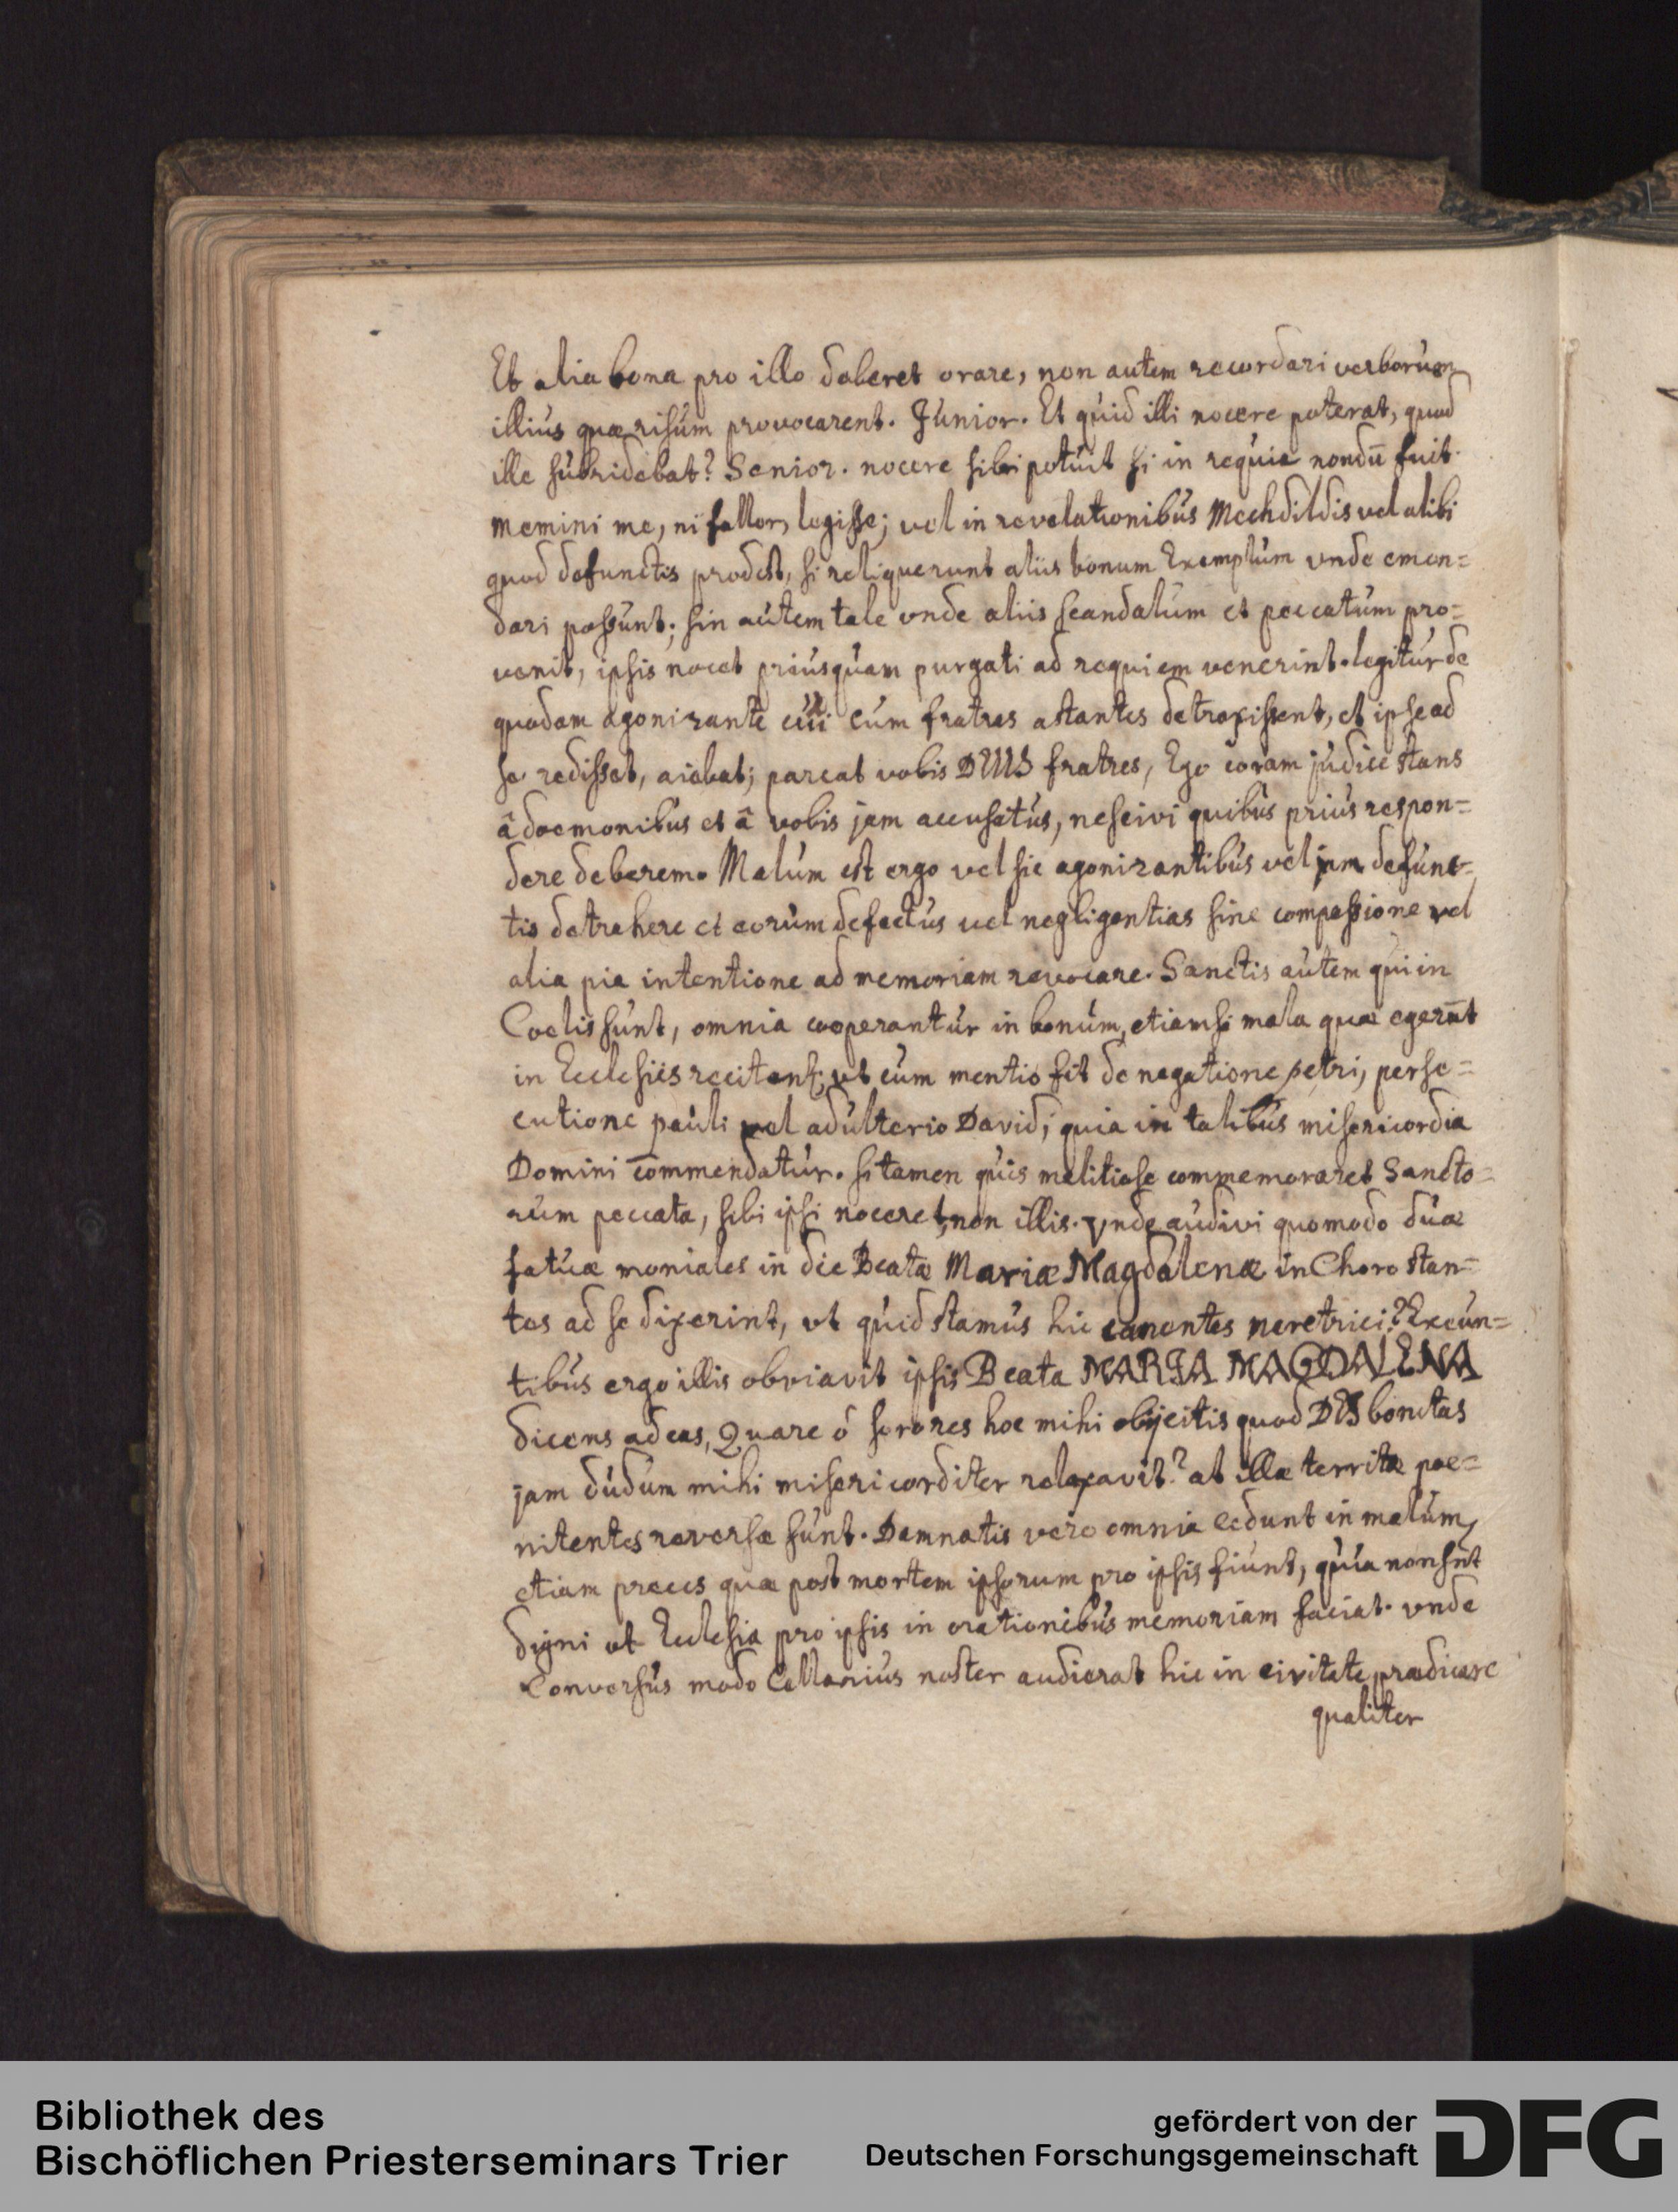 Et alia bona pro illo deberet orare, non autem recordari verborum
illius quæ risum provocarent. Junior. Et quid illi nocere poterat, quod
ille subridebat? Senior. nocere sibi potuit si in requie nondū fuit.
memini me, ni fallor, legisse; vel in revelationibus Mechdildis vel alibi
quod defunctis prodest, si reliquerunt aliis bonum Exemplum vnde emen=
dari possunt; sin autem tale vnde aliis scandalum et peccatum pro=
venit, ipsis nocet priusquam purgati ad requiem venerint. legitur de
quodam agonizante cui cum fratres astantes detraxissent, et ipse ad
se redisset, aiebat; parcat vobis DEUS fratres, Ego coram judice stans
â doemonibus et â vobis jam accusatus, nescivi quibus prius respon=
dere deberem. Malum est ergo vel sic agonizantibus vel jam defunc=
tis detrahere et eorum defectus vel negligentias sine compassione vel
alia pia intentione ad memoriam revocare. Sanctis autem qui in
Coelis sunt, omnia cooperantur in bonum, etiamsi mala quæ egerūt
in Ecclesiis recitent; vt cum mentio fit de negatione petri, perse=
cutione pauli vel adulterio David; quia in talibus misericordia
Domini commendatur. si tamen quis malitiose commemoraret Sancto=
rum peccata, sibi ipsi noceret, non illis. vnde audivi quomodo duæ
fatuæ moniales in die Beatæ Mariæ Magdalenæ in Choro stan=
tes ad se dixerint, vt quid stamus hic canentes meretrici? Exeun=
tibus ergo illis obviavit ipsis Beata MARIA MAGDALENA
dicens ad eas, Quare ó sorores hoc mihi obijcitis quod DEI bonitas
jam dudum mihi misericorditer relaxavit? at illæ territæ poe=
nitentes reversæ sunt. Damnatis vero omnia cedunt in malum,
etiam preces quæ post mortem ipsorum pro ipsis fiunt, quia non sūt
digni ut Ecclesia pro ipsis in orationibus memoriam faciat. vnde
Conversus modo Cellarius noster audierat hic in civitate prædicare
qualiter
Bibliothek des
Bischöflichen Priesterseminars Trier
gefördert von der
Deutschen Forschungsgemeinschaft
DFG